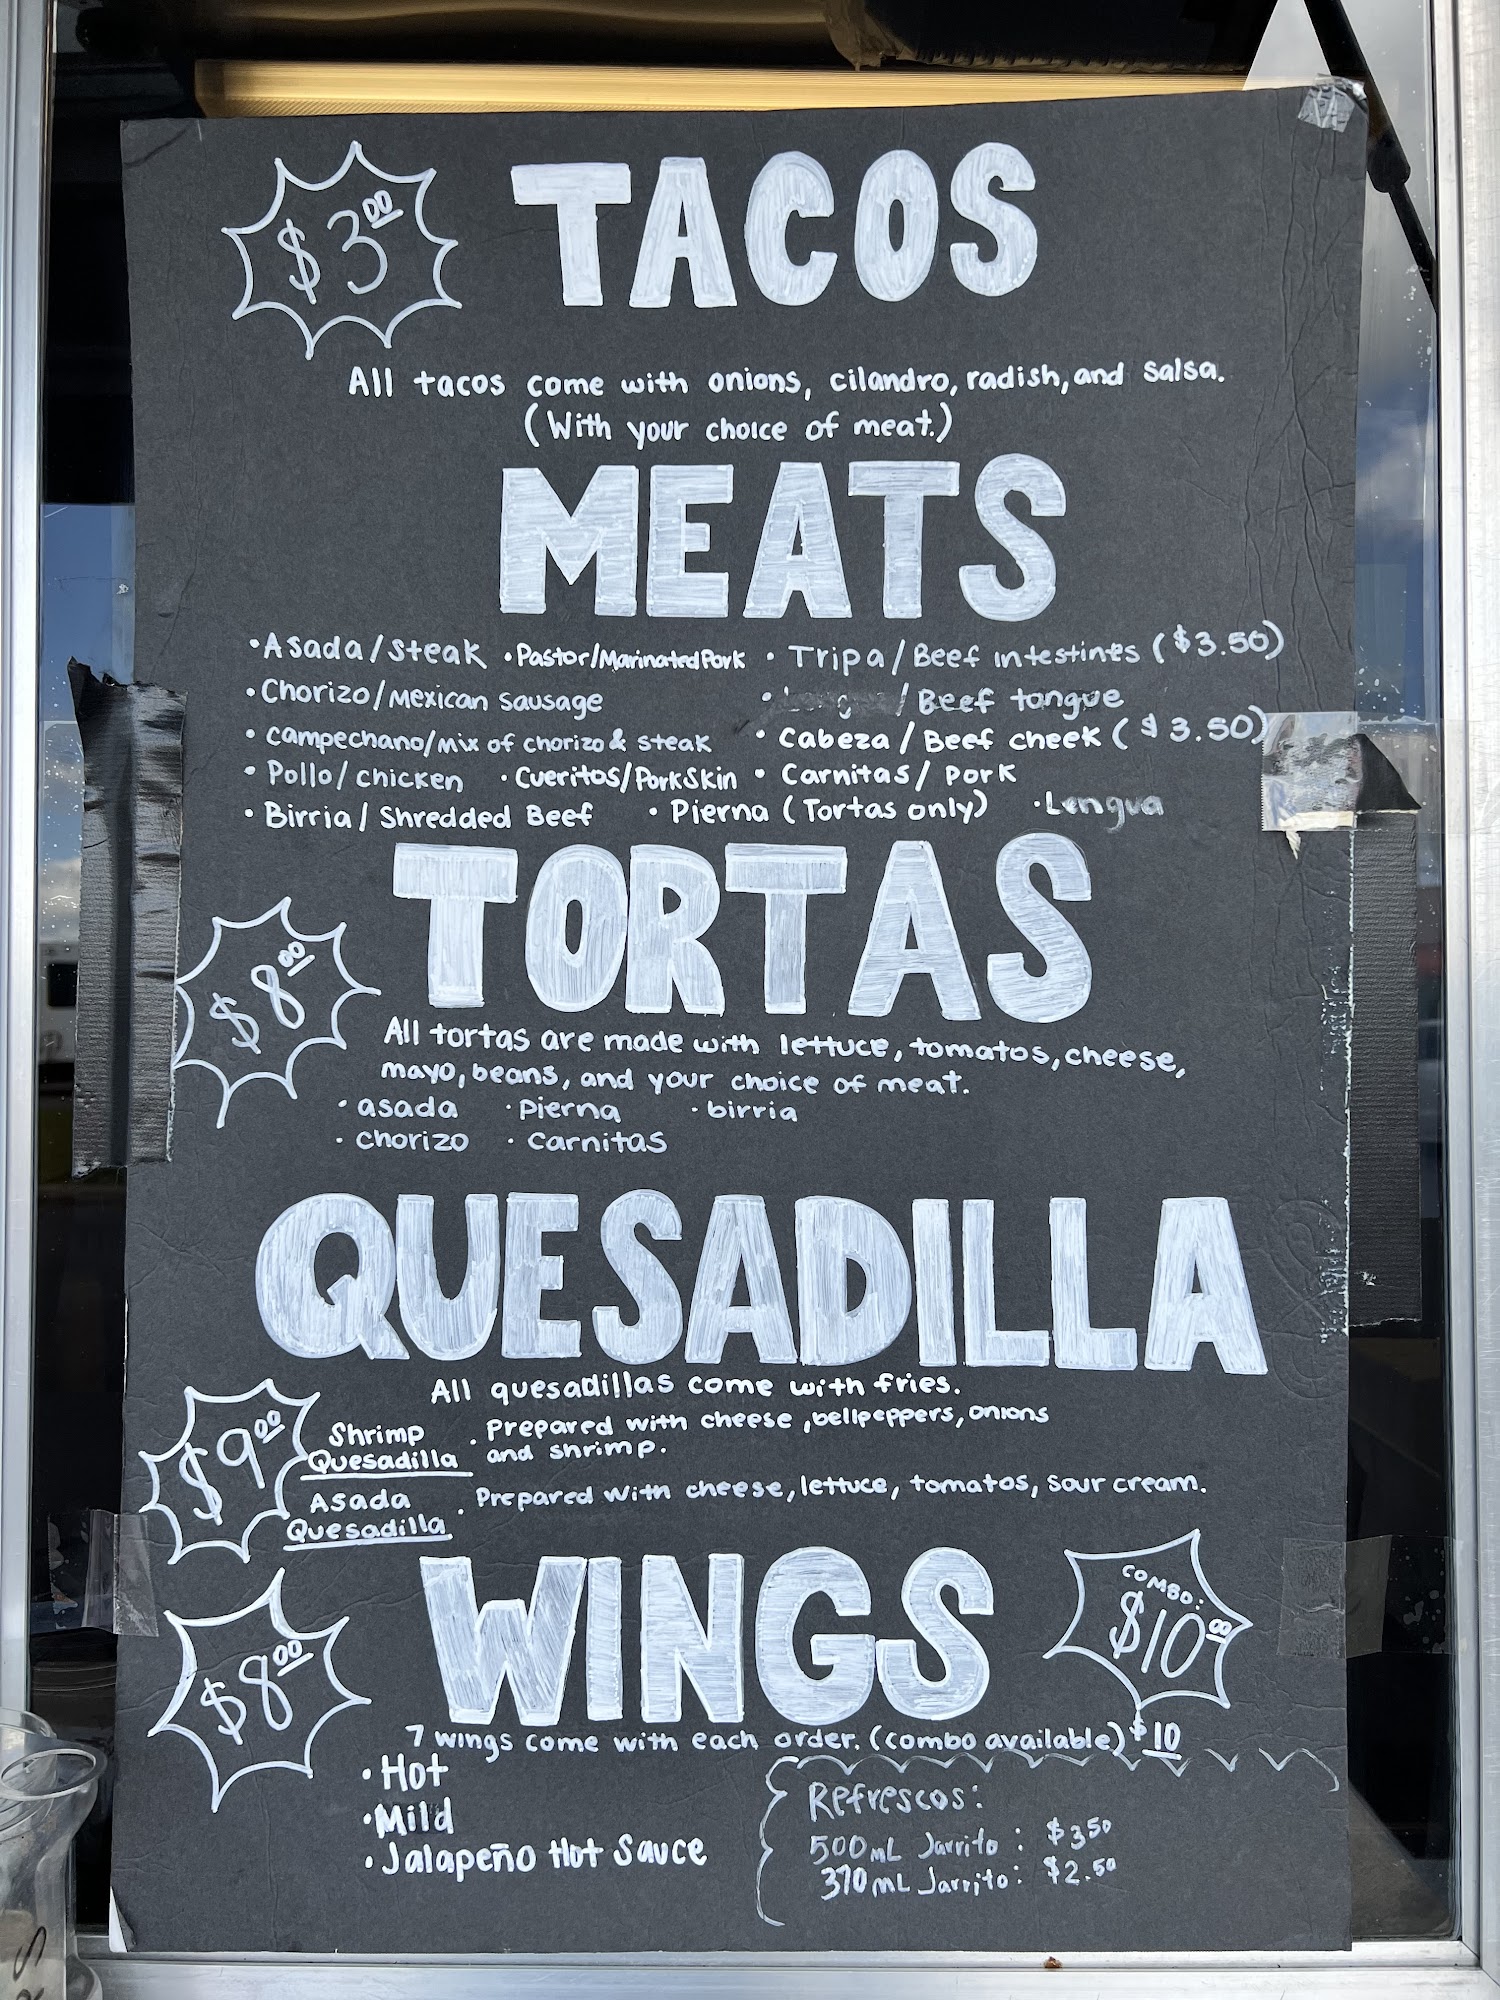 $3.00 TACOS
All tacos come with onions, cilandro, radish, and salsa.
(With your choice of meat.)
MEATS
• Asada/Steak • Pastor/Marinated Pork • Tripa/Beef intestines ($3.50)
• Chorizo/Mexican Sausage • / Beef tongue
• campechano/mix of chorizo & steak • Cabeza/Beef cheek ($3.50)
• Pollo/chicken • Cueritos/Pork Skin • Carnitas/Pork
• Birria/Shredded Beef • Pierna (Tortas only) • Lengua
$8.00 TORTAS
All tortas are made with lettuce, tomatos, cheese,
mayo, beans, and your choice of meat.
• asada • Pierna • birria
• chorizo • Carnitas
QUESADILLA
All quesadillas come with fries.
$9.00
Shrimp Quesadilla . Prepared with cheese, bellpeppers, onions
and shrimp.
Asada Quesadilla . Prepared with cheese, lettuce, tomatos, sour cream.
$8.00 WINGS COMBO: $10.00
7 wings come with each order. (combo available) $10
• Hot
• Mild
• Jalapeño Hot Sauce
Refrescos:
500mL Jarrito: $3.50
370mL Jarrito: $2.50